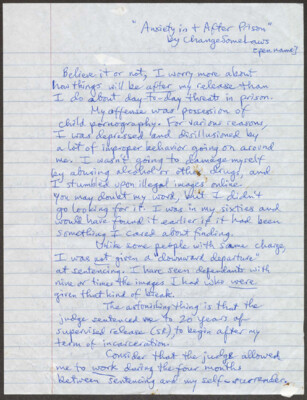 "Anxiety in + After Prison"
by ChangeSomeLaws
[pen name]
Believe it or not, I worry more about
how things will be after my release than
I do about day-to-day threat in prison.
My offense was possession of
child pornography. For various reasons,
I was depressed and disillusioned by
a lot of improper behavior going on around
me. I wasn't going to damage myself
by abusing alcohol or other drugs, and
I stumbled upon illegal images online.
You may doubt my word, but I didn't
go looking for it. I was in my sixties and
would have found it earlier if it had been
something I cared about finding.
Unlike some people with same charge,
I was not given a "downward departure"
at sentencing. I have seen defendants with
nine or times the images I had who were
given that kind of break.
The astonishing thing is that the
judge sentenced me to 20 years of
supervised release (SR) to begin after my
term of incarceration.
Consider that the judge allowed
me to work during the four months
between sentencing and my self-surrender,